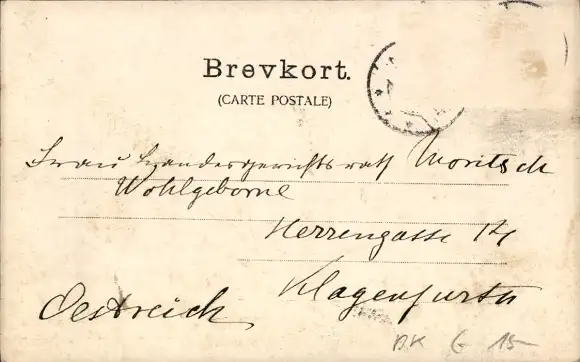 Brevkort.
(CARTE POSTALE)
Frau Landesgerichtsrath Moritsch
Wohlgeborne
Herrengasse 14
Klagenfurth
Oestreich
DK G 15-